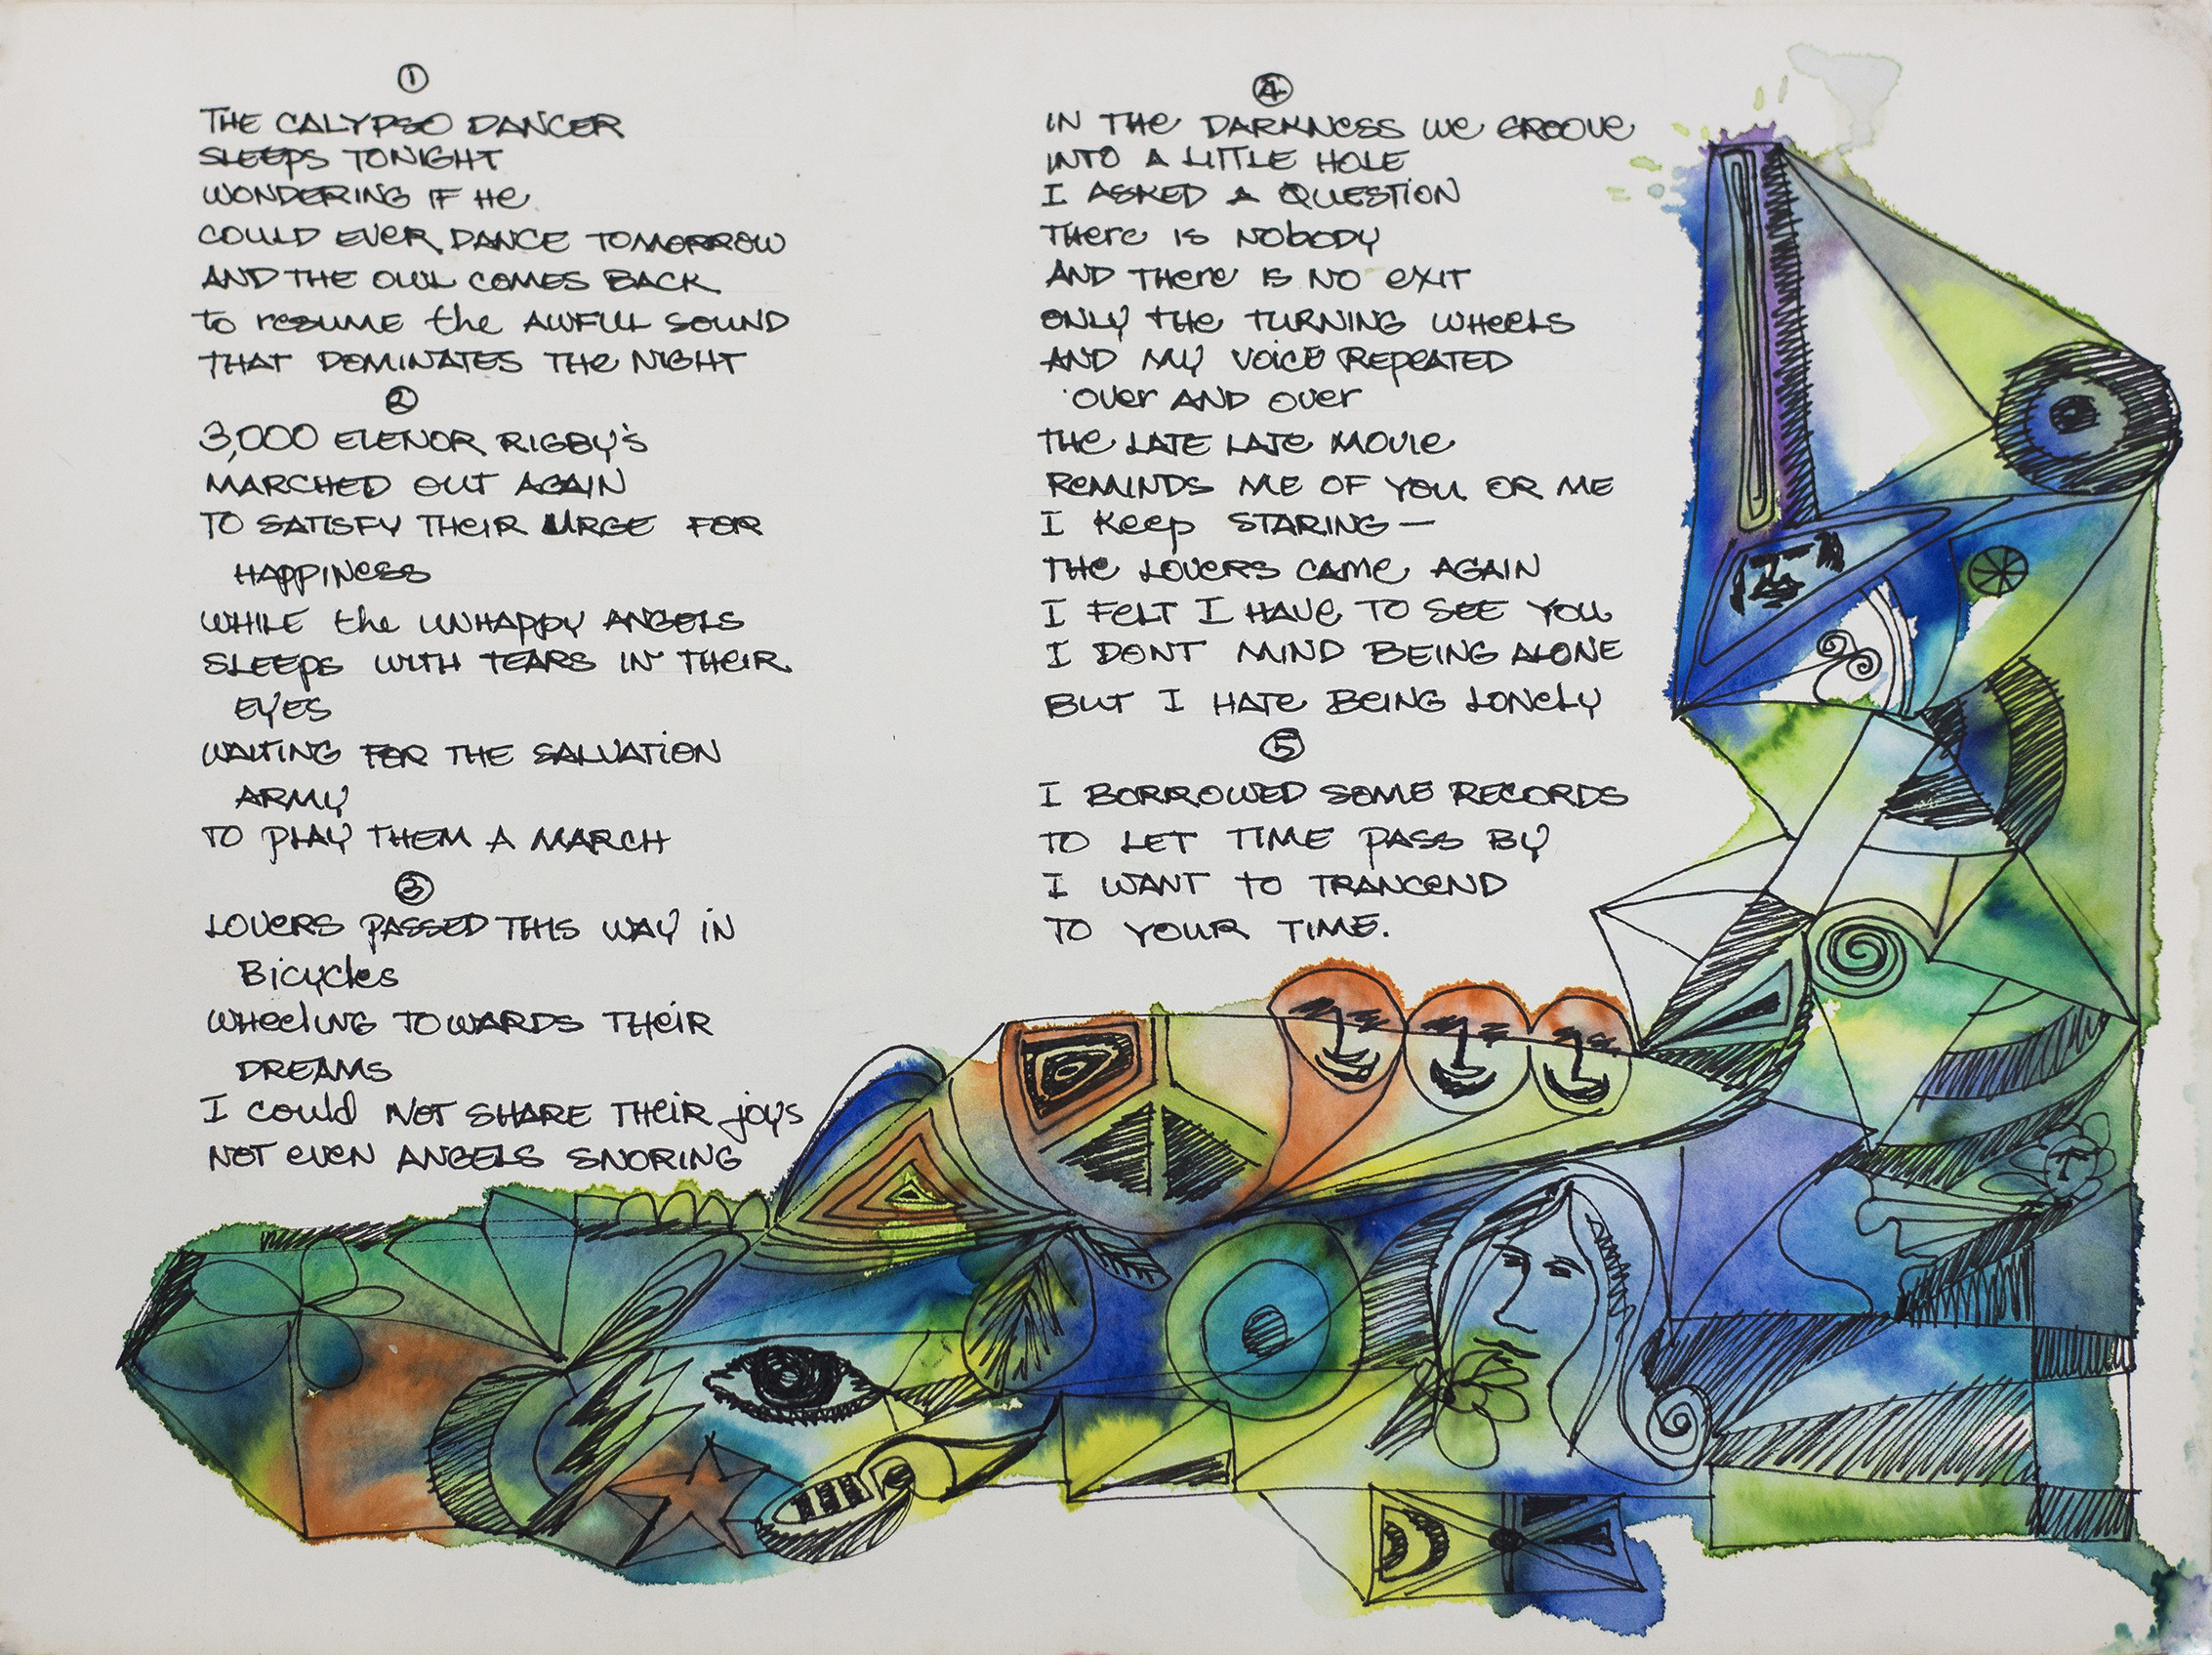 1
THE CALYPSO DANCER
SLEEPS TONIGHT
WONDERING IF He
COULD EVER DANCE TOMORROW
AND THE OWL COMES BACK
to resume the AWFUL SOUND
THAT DOMINATES THe NIGHT
2
3,000 ELENOR RIGBY's
MARCHED OUT AGAIN
TO SATISFY THeIR URGE FOR
HAPPINESS
WHILE the UNHAPPY ANGELS
SLEEPS WITH TEARS IN THEIR
EYES
WAITING FOR THE SALVATION
ARMY
TO PLAY THEM A MARCH
3
LOVERS PASSED THIS WAY IN
Bicycles
WHeeLING TOWARDS THeiR
DREAMS
I could NOT SHARE THeiR joys
NOT even ANGELS SNORING
4
IN THe DARKNESS We GROOVe
INTO A LITTLE HOLE
I ASKED A QUESTION
THere IS NobODY
AND THere IS NO eXIT
ONLY THe TURNING WHeeLS
AND MY VOICE RePEATED
OVer AND OVer
THe LATE LATe MOVIe
ReMINDS ME OF YOU OR ME
I Keep STARING —
THe LOVERS CAMe AGAIN
I FeLT I HAVe TO SEE YOU
I DONT MIND BEING ALONE
BUT I HATe BEING LONeLY
5
I BORROWED SOME RECORDS
TO LET TIME PASS BY
I WANT TO TRANCeND
TO YOUR TIME.